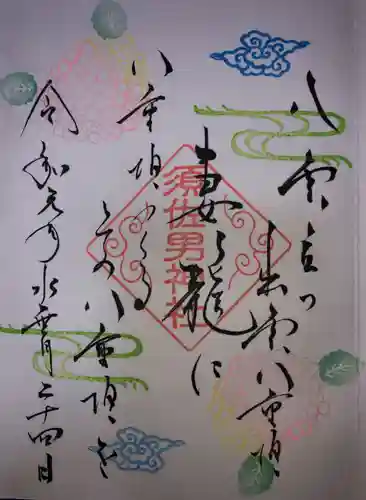 八雲立つ
出雲八重垣
妻ごも龍に
八重垣つくる
その八重垣を
令和元年水無月二十四日
須佐男神社